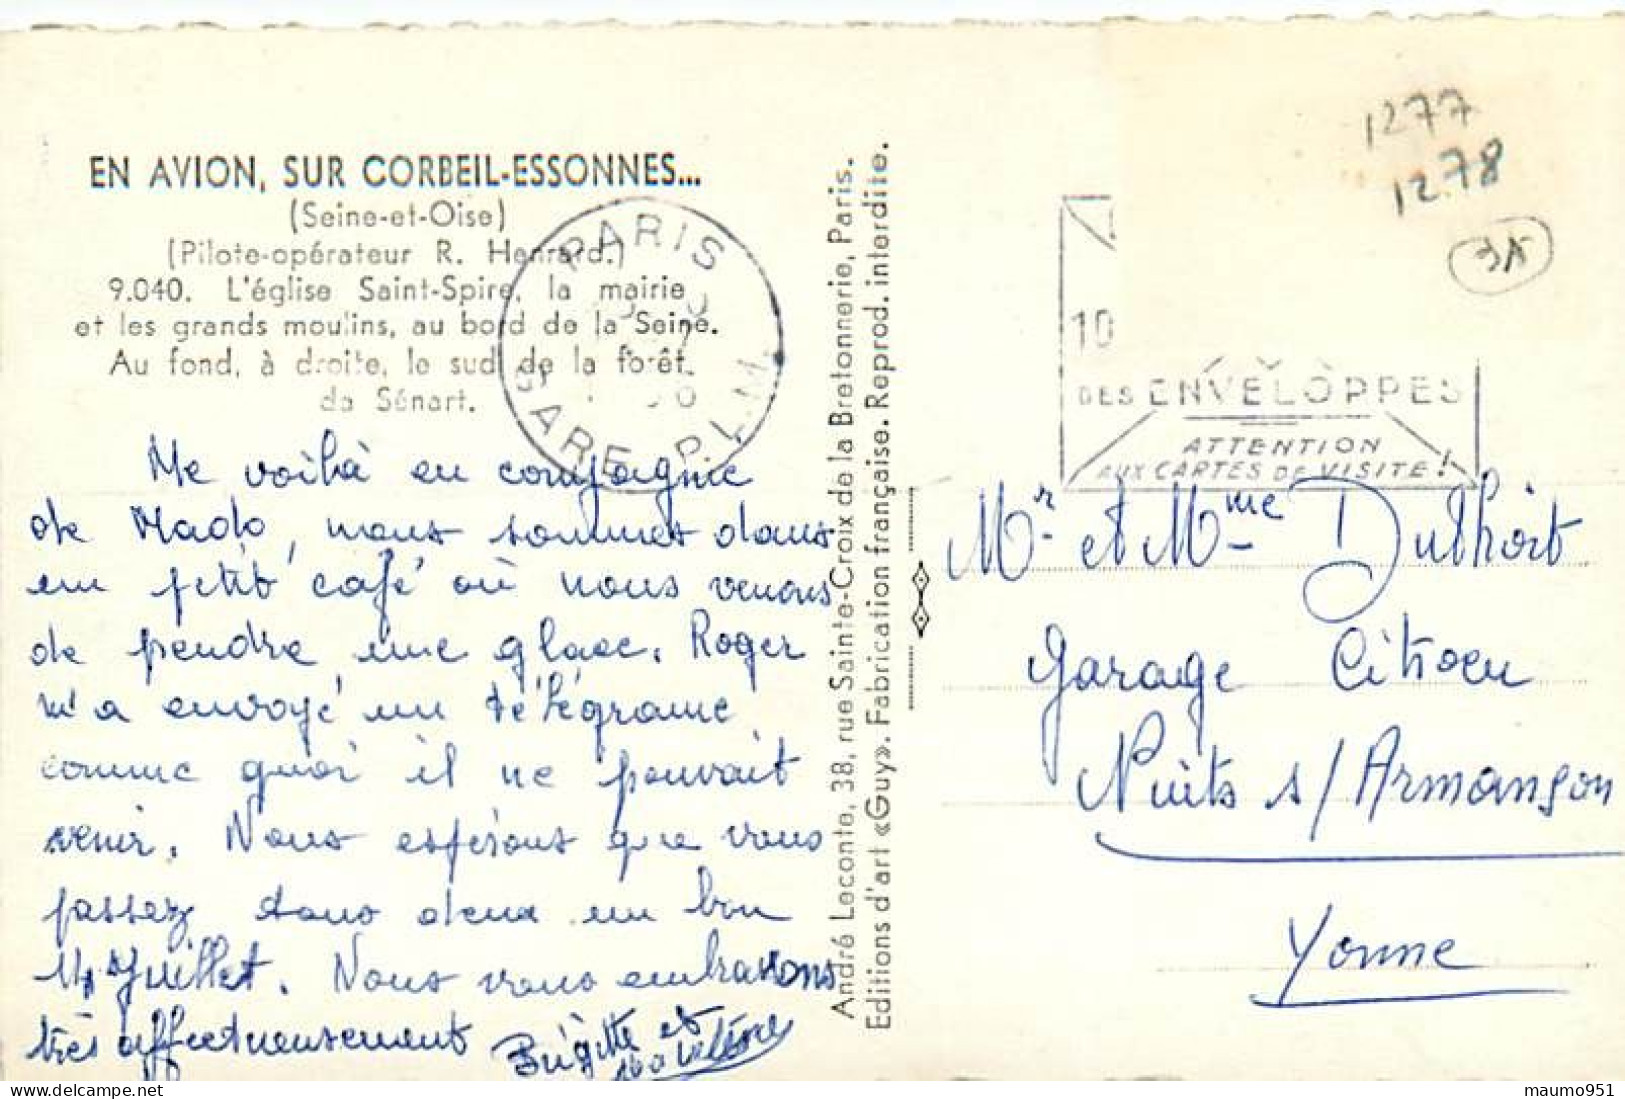 EN AVION, SUR CORBEIL-ESSONNES...
(Seine-et-Oise)
(Pilote-opérateur R. Henrard.)
9.040. L'église Saint-Spire, la mairie
et les grands moulins, au bord de la Seine.
Au fond, à droite, le sud de la forêt
de Sénart.
PARIS
GARE P.L.M.
Me voilà en compagnie
de Mado, nous sommes dans
un petit café où nous venons
de pendre une glace. Roger
m'a envoyé un télégrame
comme quoi il ne pouvait
venir. Nous espérons que vous
passez tous deux un bon
14 Juillet. Nous vous embrassons
très affectueusement
Brigitte et
André Leconte, 38, rue Sainte-Croix de la Bretonnerie, Paris.
Editions d'art «Guy». Fabrication française. Reprod. interdite.
1277
1278
10
DES ENVELOPPES
ATTENTION
AUX CARTES DE VISITE !
Mr et Mme Dulhoit
Garage Citroen
Nuits s/Armançon
Yonne
Delcampe.net
maumo951